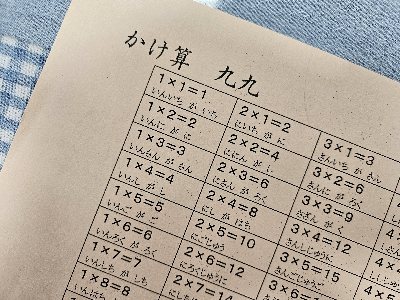 かけ算 九九
1×1=1
いんいち が いち
1×2=2
いんに が に
1×3=3
いんさん が さん
1×4=4
いんし が し
1×5=5
いんご が ご
1×6=6
いんろく が ろく
1×7=7
いんしち が しち
1×8=8
いんはち
2×1=2
にいち が に
2×2=4
ににん が し
2×3=6
にさん が ろく
2×4=8
にし が はち
2×5=10
にごじゅう
2×6=12
にろくじゅうに
2×7=14
3×1=3
さんいち が さん
3×2=6
さんに が ろく
3×3=9
さざん が く
3×4=12
さんしじゅうに
3×5=15
さんごじゅうご
3×6